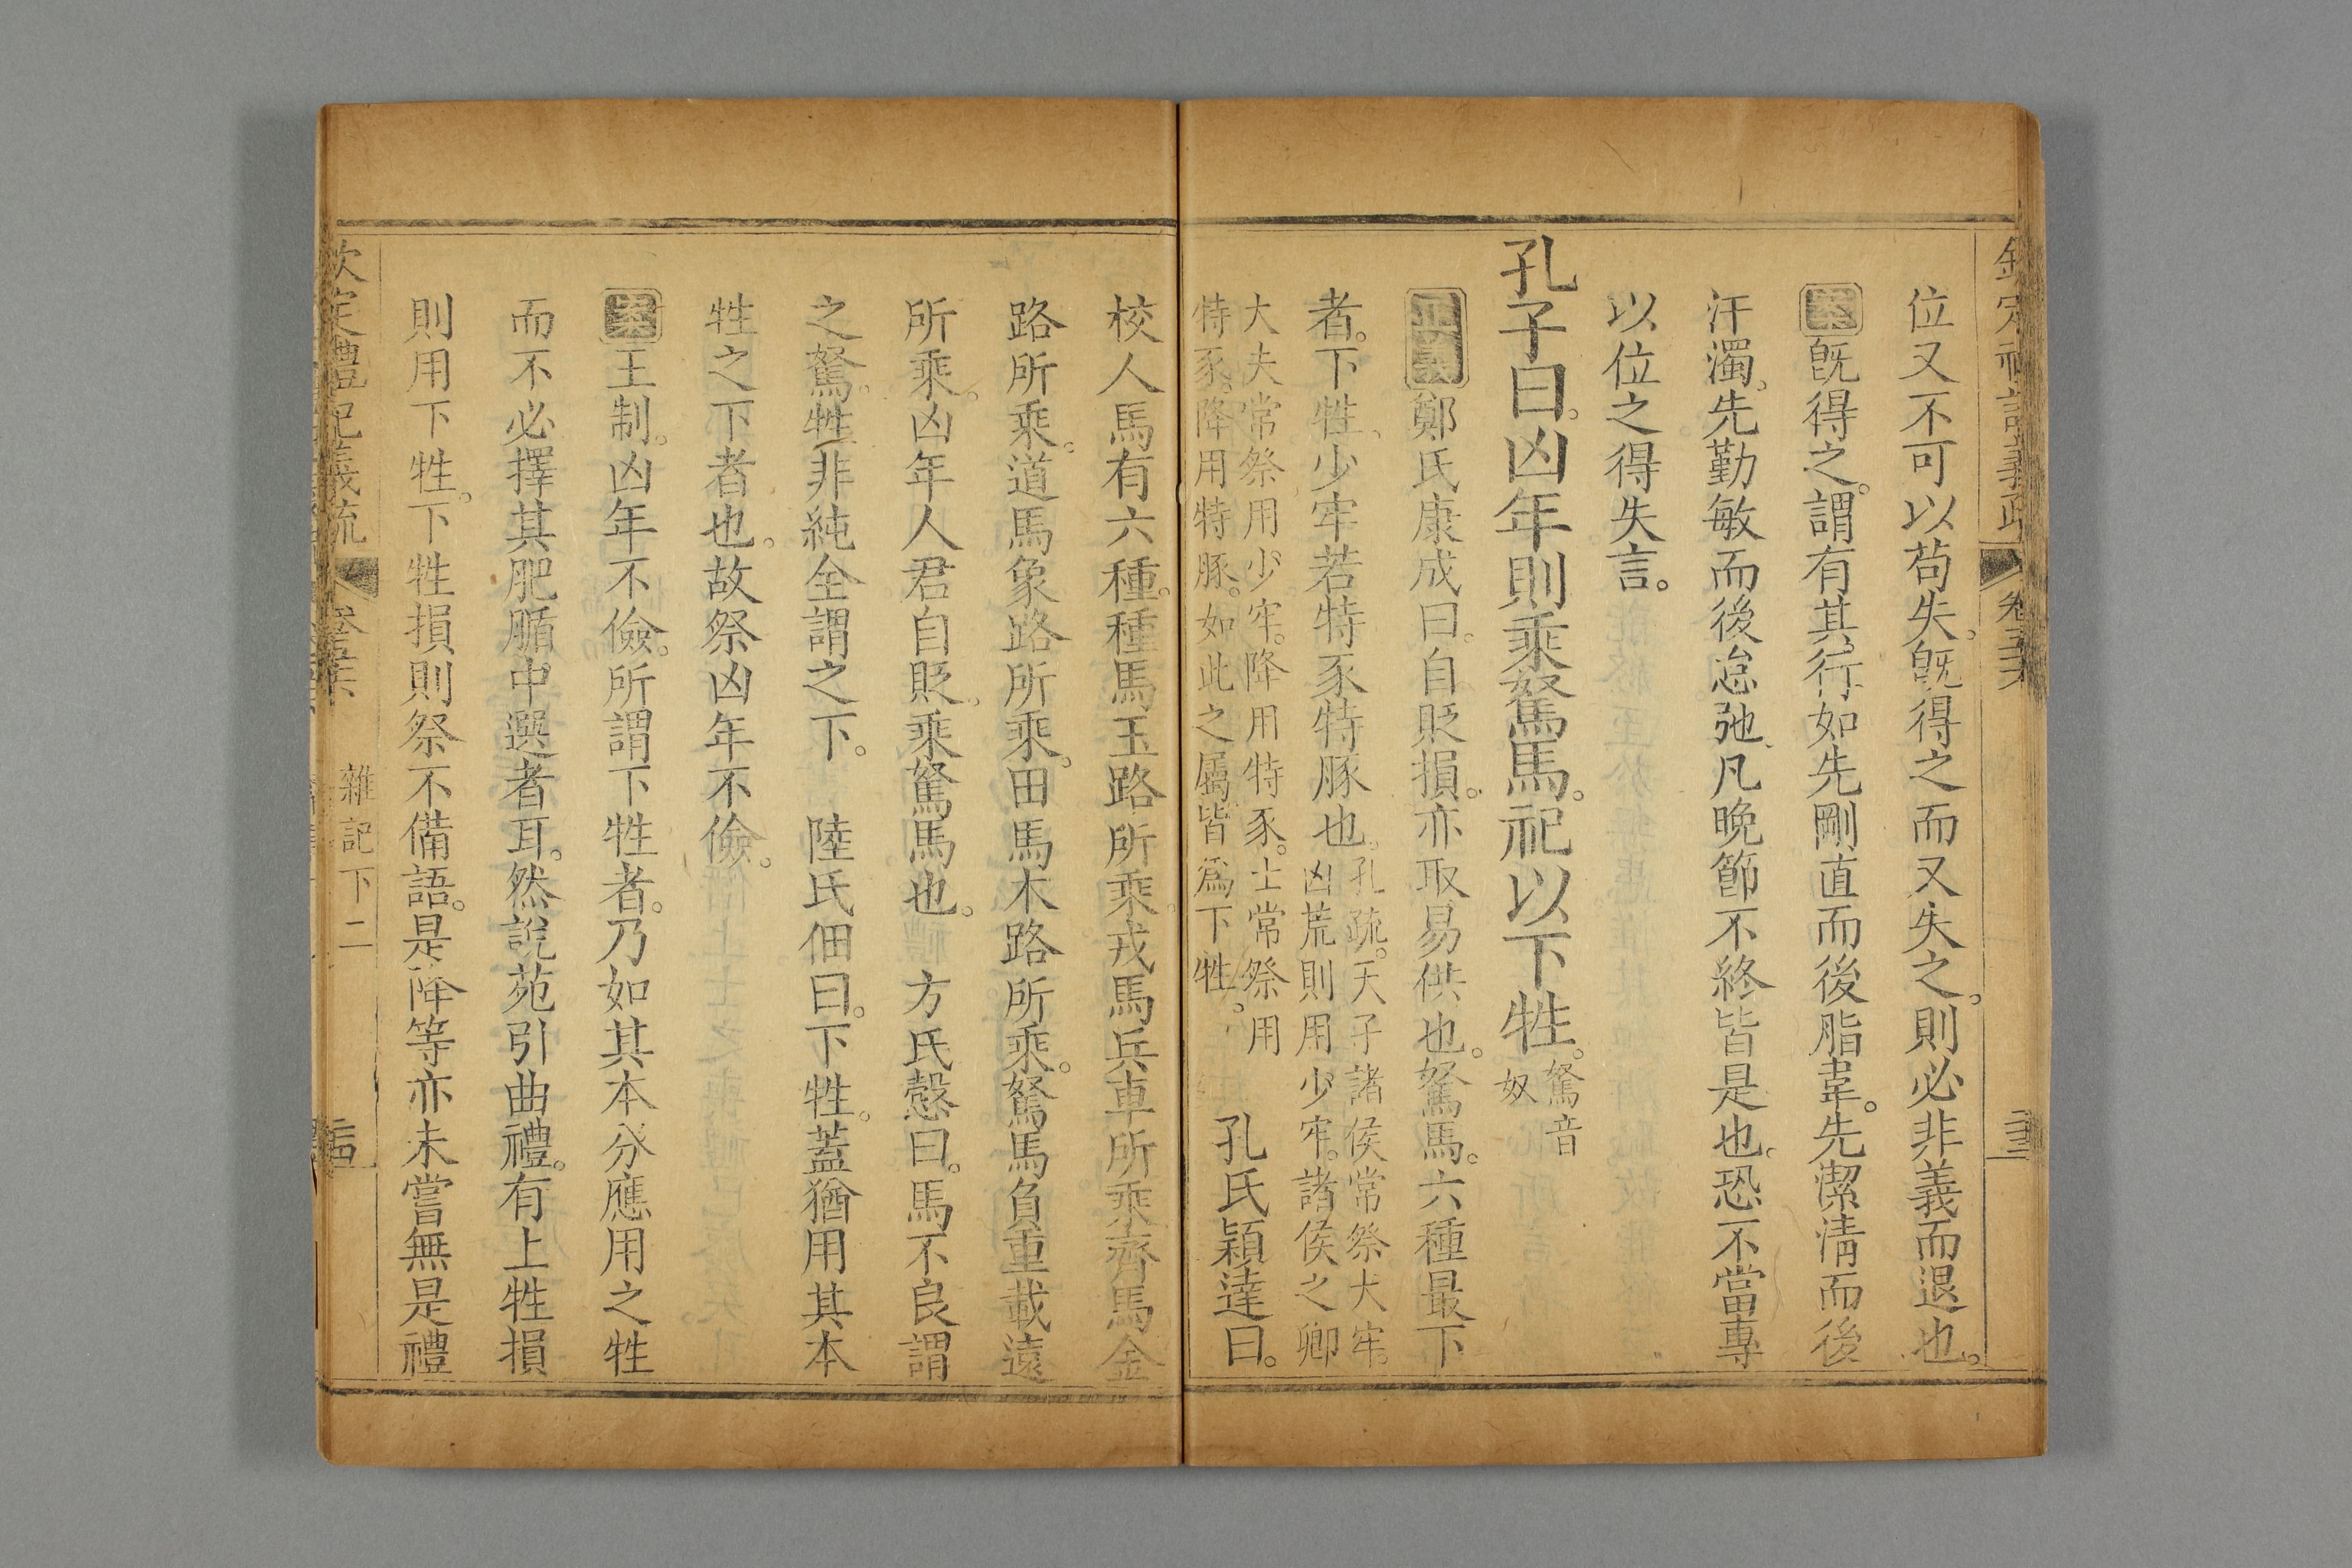 位又不可以苟失。旣得之而又失之。則必非義而退也。
案旣得之。謂有其行。如先剛直而後脂韋。先潔淸而後
汗濁。先勤敏而後怠弛。凡晚節不終皆是也。恐不當專
以位之得失言。
孔子曰。凶年則乘駑馬。祀以下牲。駑音奴
正義鄭氏康成曰。自貶損。亦取易供也。駑馬。六種最下
者。下牲。少牢若特豕特豚也。孔疏。天子諸侯常祭太牢。凶荒則用少牢。諸侯之卿
大夫常祭用少牢。降用特豕。士常祭用特豕。降用特豚。如此之屬皆爲下牲。孔氏穎達曰。
校人馬有六種。種馬玉路所乘。戎馬兵車所乘。齊馬金
路所乘。道馬象路所乘。田馬木路所乘。駑馬負重載遠
所乘。凶年人君自貶。乘駑馬也。方氏慤曰。馬不良謂
之駑。牲非純全謂之下。陸氏佃曰。下牲。蓋猶用其本
牲之下者也。故祭凶年不儉。
案王制。凶年不儉。所謂下牲者。乃如其本分應用之牲
而不必擇其肥腯中選者耳。然說苑引曲禮。有上牲損
則用下牲。下牲損則祭不備語。是降等亦未嘗無是禮
欽定禮記義疏
雜記下二